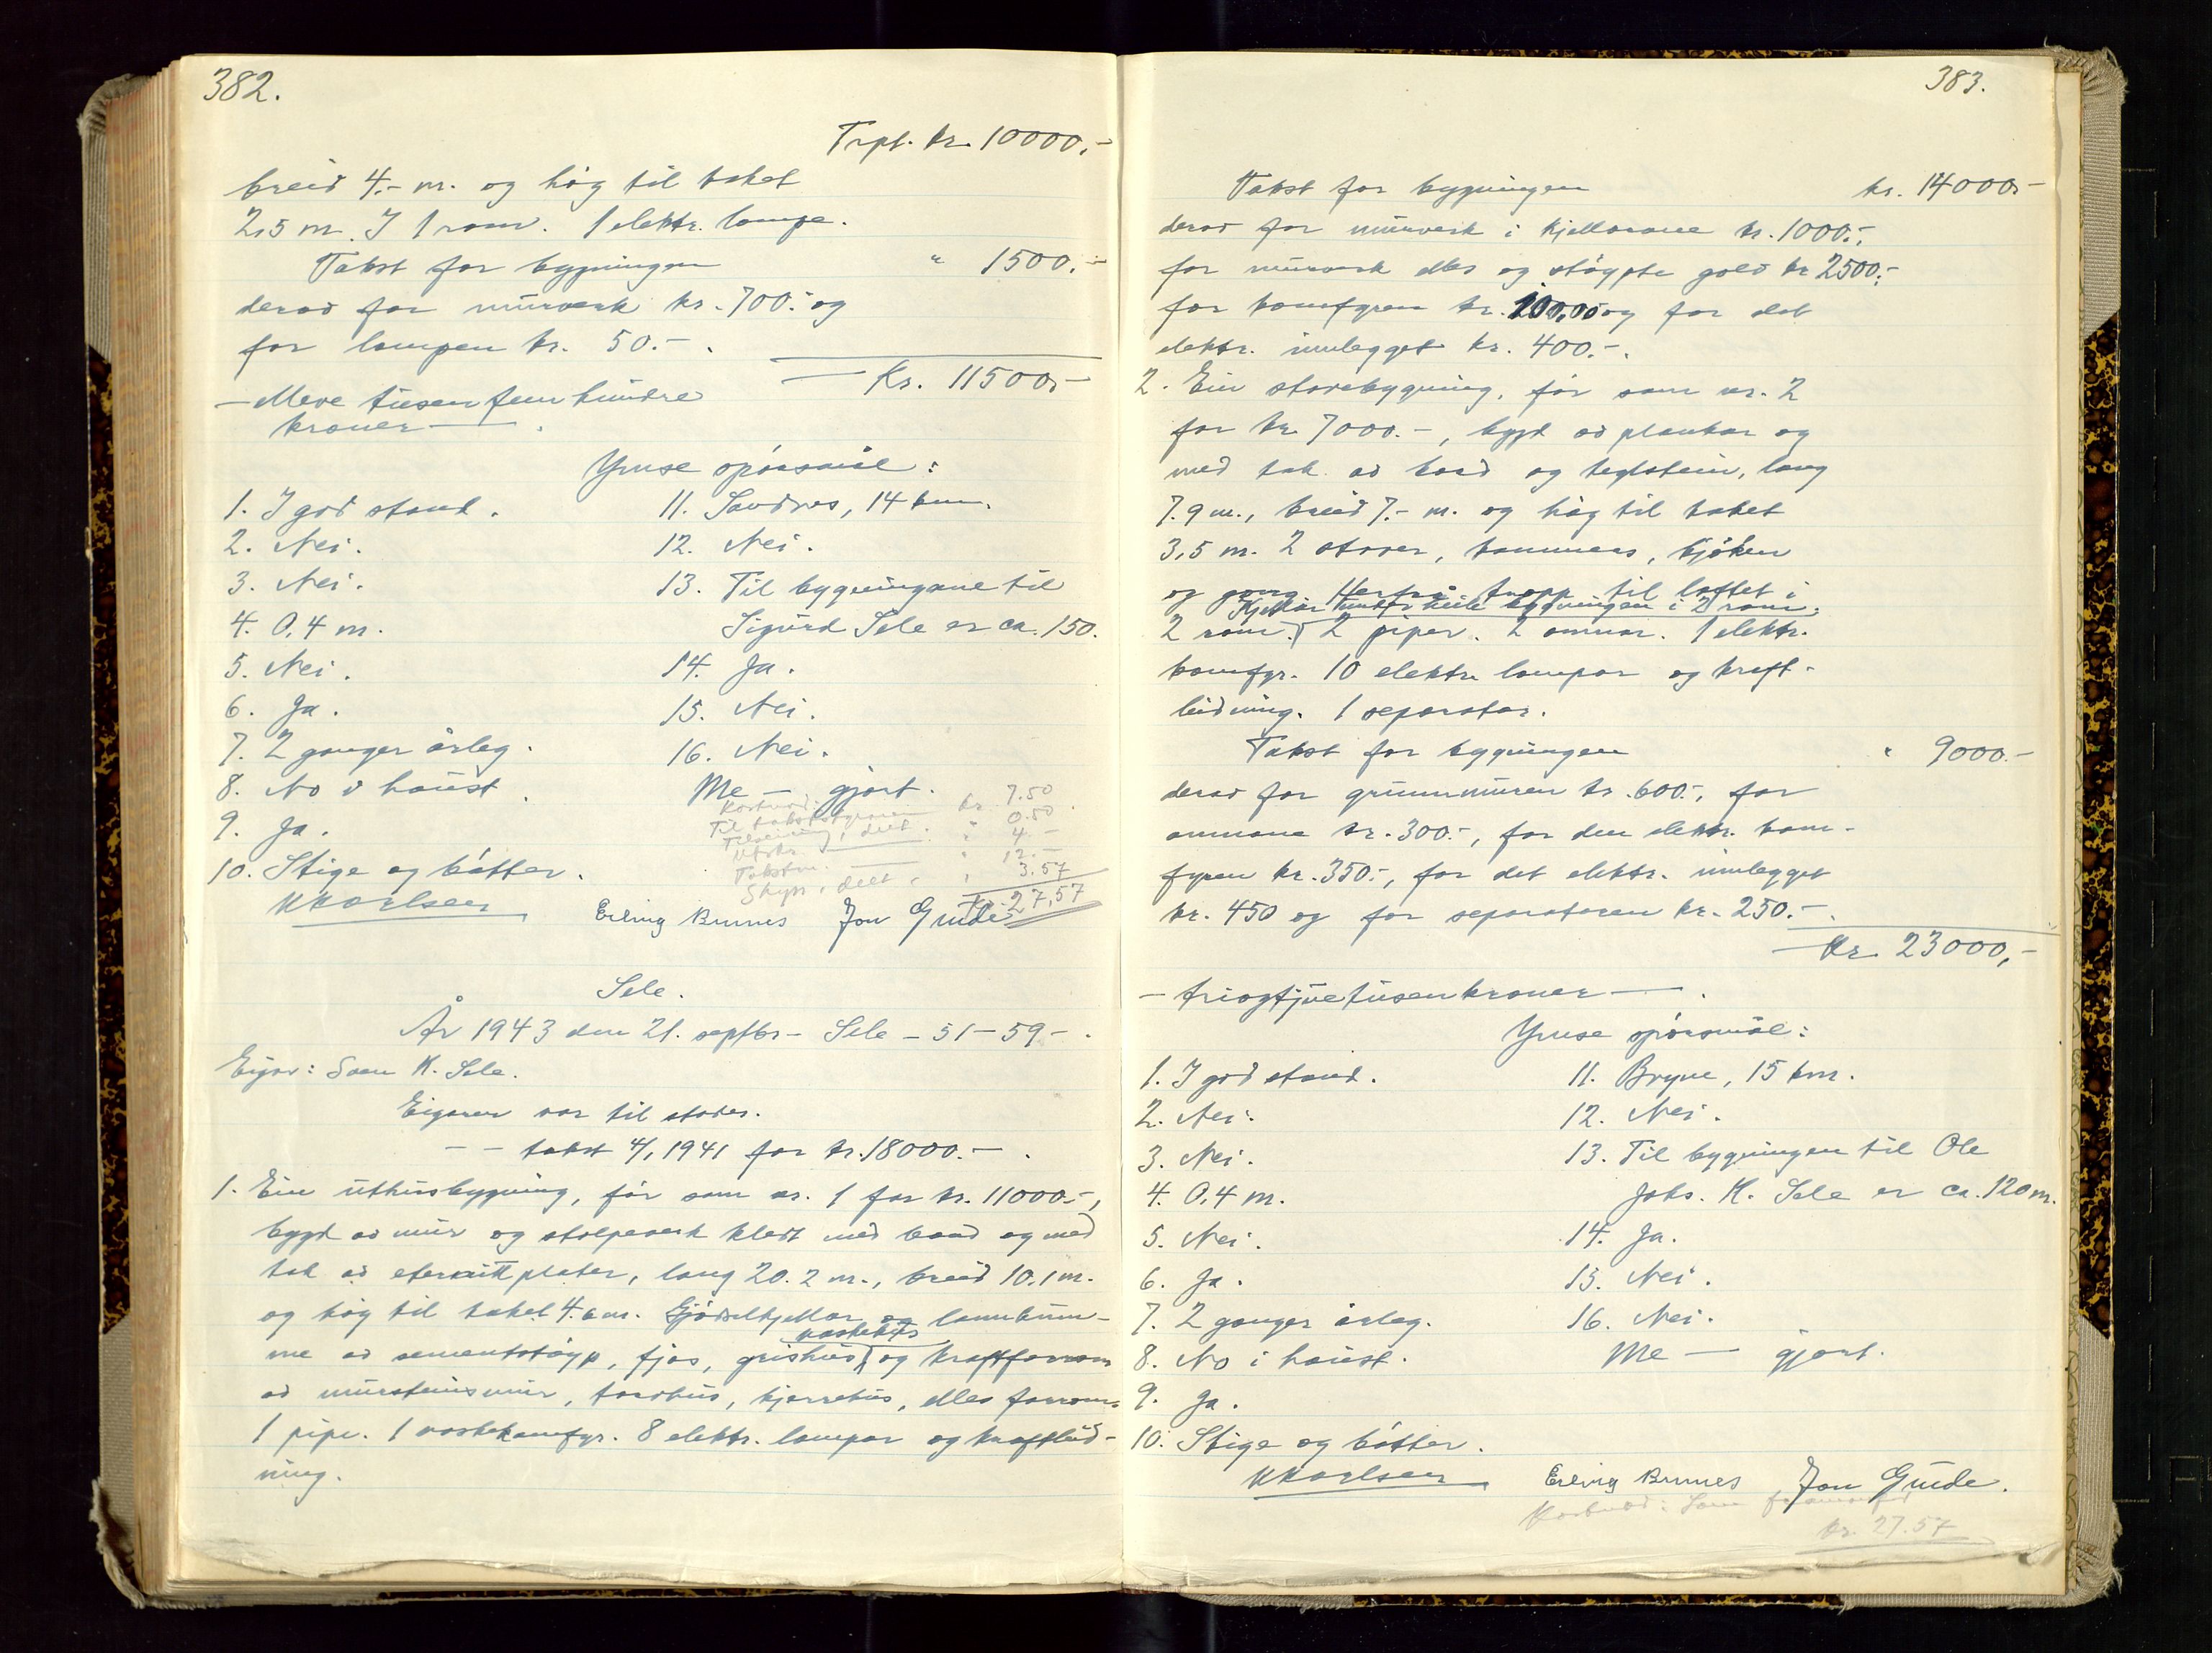 382.
Trpt. kr. 10000,-
breid 4.- m. og høg til taket
2,5 m. I 1 rom. 1 elektr. lampe.
Takst for bygningen " 1500.-
derav for murverk kr. 700.- og
for lampen kr. 50.- .
Kr. 11500,-
- Elleve tusen fem hundre
kroner - .
Ymse spørsmål:
1. I god stand.
2. Nei.
3. Nei.
4. 0,4 m.
5. Nei.
6. Ja.
7. 2 ganger årleg.
8. No i haust.
9. Ja.
10. Stige og bøtter.
11. Sandnes, 14 km.
12. Nei.
13. Til bygningane til
Sigurd Sele er ca. 150.
14. Ja.
15. Nei.
16. Nei.
Me - gjort.
Kostnad:
Til takststyraren kr. 7.50
Teikning, delt. " 0.50
Utskr. " 4.-
Takstm. " 12.-
Skyss, delt, " 3.57
Kr. 27,57
K Karlsen Erling Bunes Jon Gude
Sele.
År 1943 den 21. septbr - Sele - 51 - 59 - .
Eigar: Sven K. Sele.
Eigaren var til stades.
- - takst 4/1 1941 for kr. 18000.- .
1. Ein uthusbygning, før som nr. 1 for kr. 11000.-,
bygd av mur og stolpeverk kledt med bord og med
tak av eternittplater, lang 20.2 m., breid 10.1 m.
og høg til taket 4.6 m. Gjødselkjellar og landkum-
vaskehus
me av sementstøyp, fjos, grishus og kraftforrom
av mursteinsmur, torvhus, kjerrehus, elles forrom.
1 pipe. 1 vaskekomfyr. 8 elektr. lampor og kraftleid-
ning.
383.
Takst for bygningen kr. 14000,-
derav for murverk i kjellarane kr. 1000.-,
for murverk elles og støypte golv kr 2500.-,
for komfyren kr. 100,00 og for det
elektr. innlegget kr. 400.-.
2. Ein stovebygning, før som nr. 2
for kr. 7000.-, bygd av plankar og
med tak av bord og teglstein, lang
7.9 m., breid 7.- m. og høg til taket
3,5 m. 2 stover, kammers, kjøken
og gang. Herfrå tropp til loftet i
Kjellar under heile bygningen i 2 rom.
2 rom. 2 piper. 2 omnar. 1 elektr.
komfyr. 10 elektr. lampor og kraft-
leidning. 1 separator.
Takst for bygningen " 9000.-
derav for grunnmuren kr. 600.-, for
omnane kr. 300.-, for den elektr. kom-
fyren kr. 350.-, for det elektr. innlegget
kr. 450 og for separatoren kr. 250.-.
Kr. 23000,-
- triogtjuetusen kroner - .
Ymse spørsmål:
1. I god stand.
2. Nei.
3. Nei.
4. 0,4 m.
5. Nei.
6. Ja.
7. 2 ganger årleg.
8. No i haust.
9. Ja.
10. Stige og bøtter.
11. Bryne, 15 km.
12. Nei.
13. Til bygningen til Ole
Johs. K. Sele er ca. 120 m.
14. Ja.
15. Nei.
16. Nei.
Me - gjort.
K Karlsen Erling Bunes Jon Gude.
Kostnad: Som
kr. 27.57